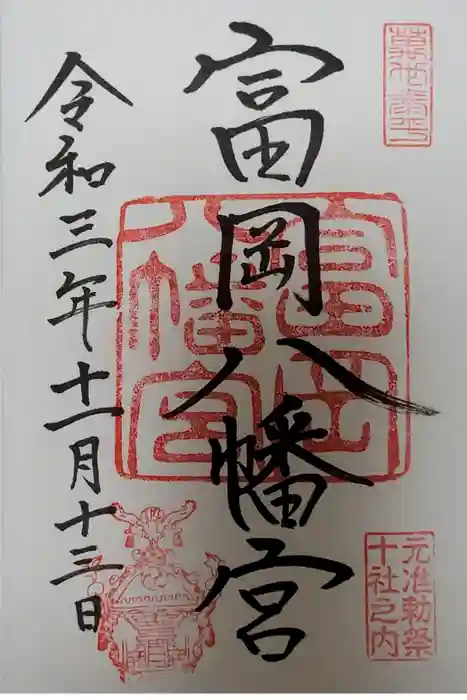 富岡八幡宮
令和三年十一月十三日
富岡
八幡宮
元准勅祭
十社之内